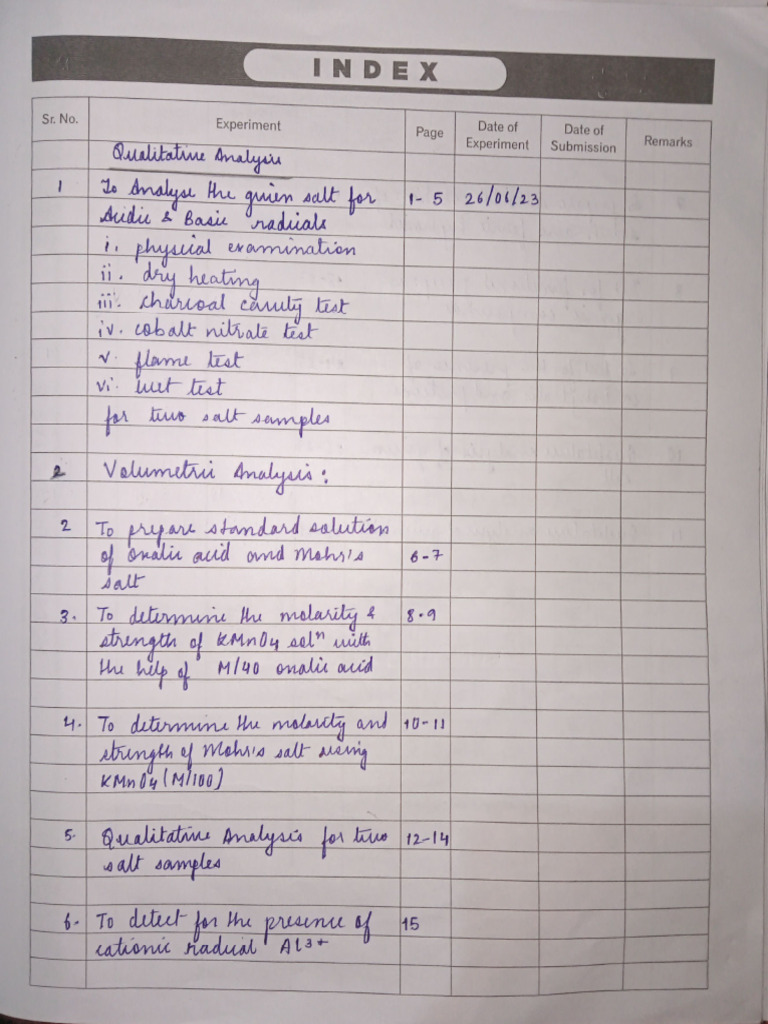 INDEX
Sr. No. Experiment Page Date of Experiment Date of Submission Remarks
Qualitative Analysis
1 To Analyse the given salt for 1-5 26/06/23
Acidic & Basic radicals
i. physical examination
ii. dry heating
iii. charcoal cavity test
iv. cobalt nitrate test
v. flame test
vi. wet test
for two salt samples
2 Volumetric Analysis:
2 To prepare standard solution
of oxalic acid and Mohr's 6-7
salt
3. To determine the molarity & 8-9
strength of KMnO4 solⁿ with
the help of M/40 oxalic acid
4. To determine the molarity and 10-11
strength of Mohr's salt using
KMnO4 (M/100)
5. Qualitative Analysis for two 12-14
salt samples
6. To detect for the presence of 15
cationic radical Al3+